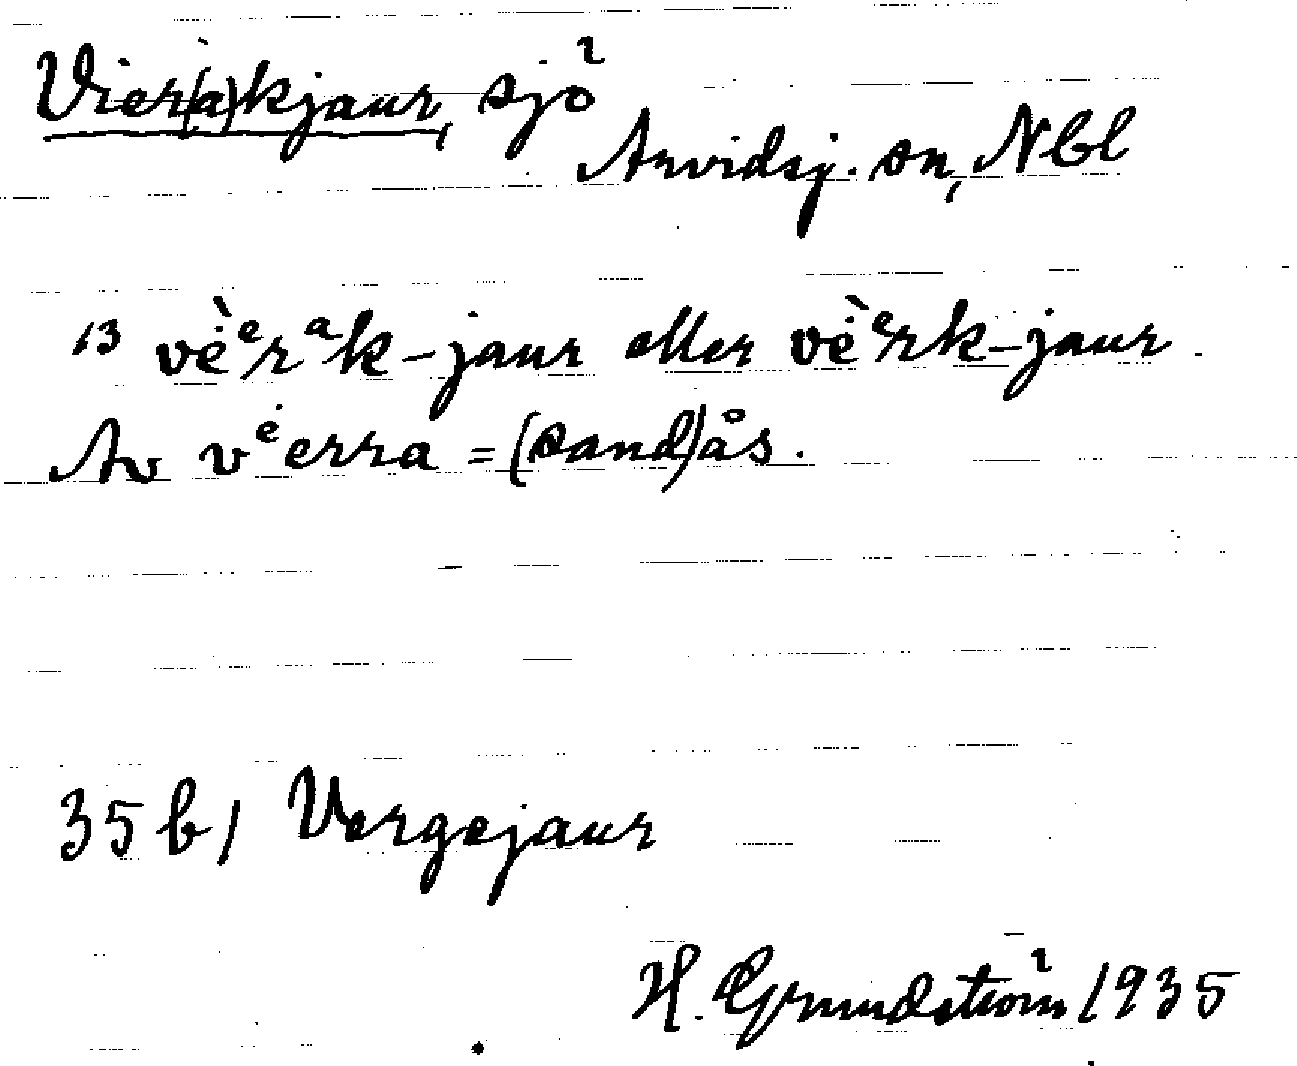 Vier(a)kjaur, sjö
Arvidsj. sn, Nbl
13 vė̀ᵉrᵃk-jaur eller vė̀ᵉrk-jaur.
Av vᵉ́erra = (sand)ås.
35 b/ Vergejaur
H. Grundström 1935